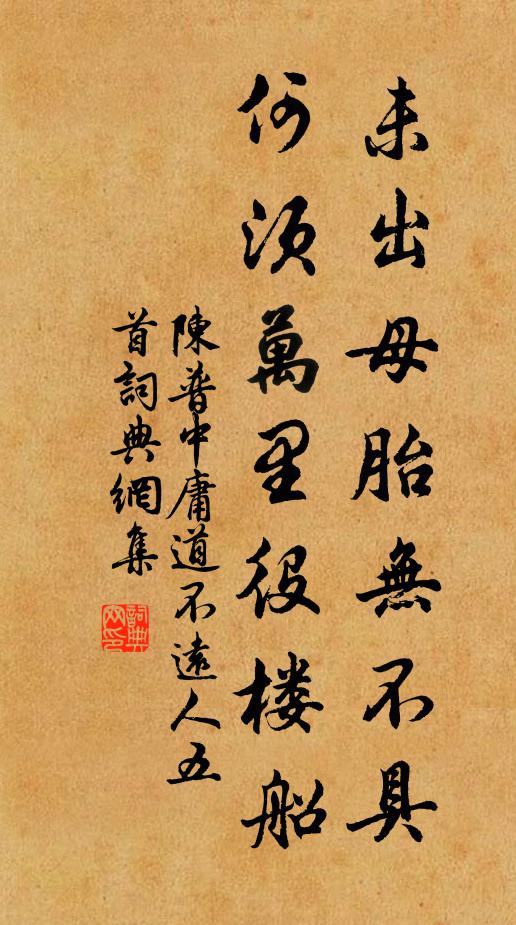 未出母胎無不具
何須萬里役楼船
陳普中庸道不遠人五
首詞典網集
詞典
网印